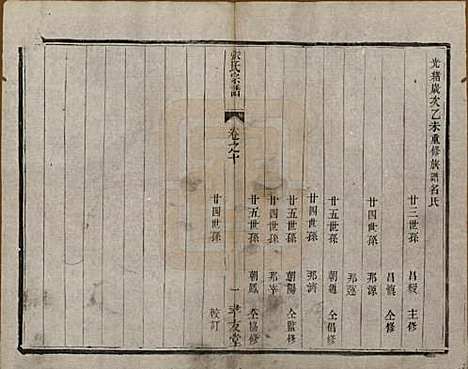 光緒歲次乙未重修族譜名氏
廿三世孫 昌 主修
昌 仝修
廿四世孫 邦源
邦
廿五世孫 朝 仝倡修
廿四世孫 邦
廿五世孫 朝陽 仝監修
廿四世孫 邦
廿五世孫 朝鳳 仝協修
廿四世孫 校訂
氏宗譜
卷之十
一
友堂